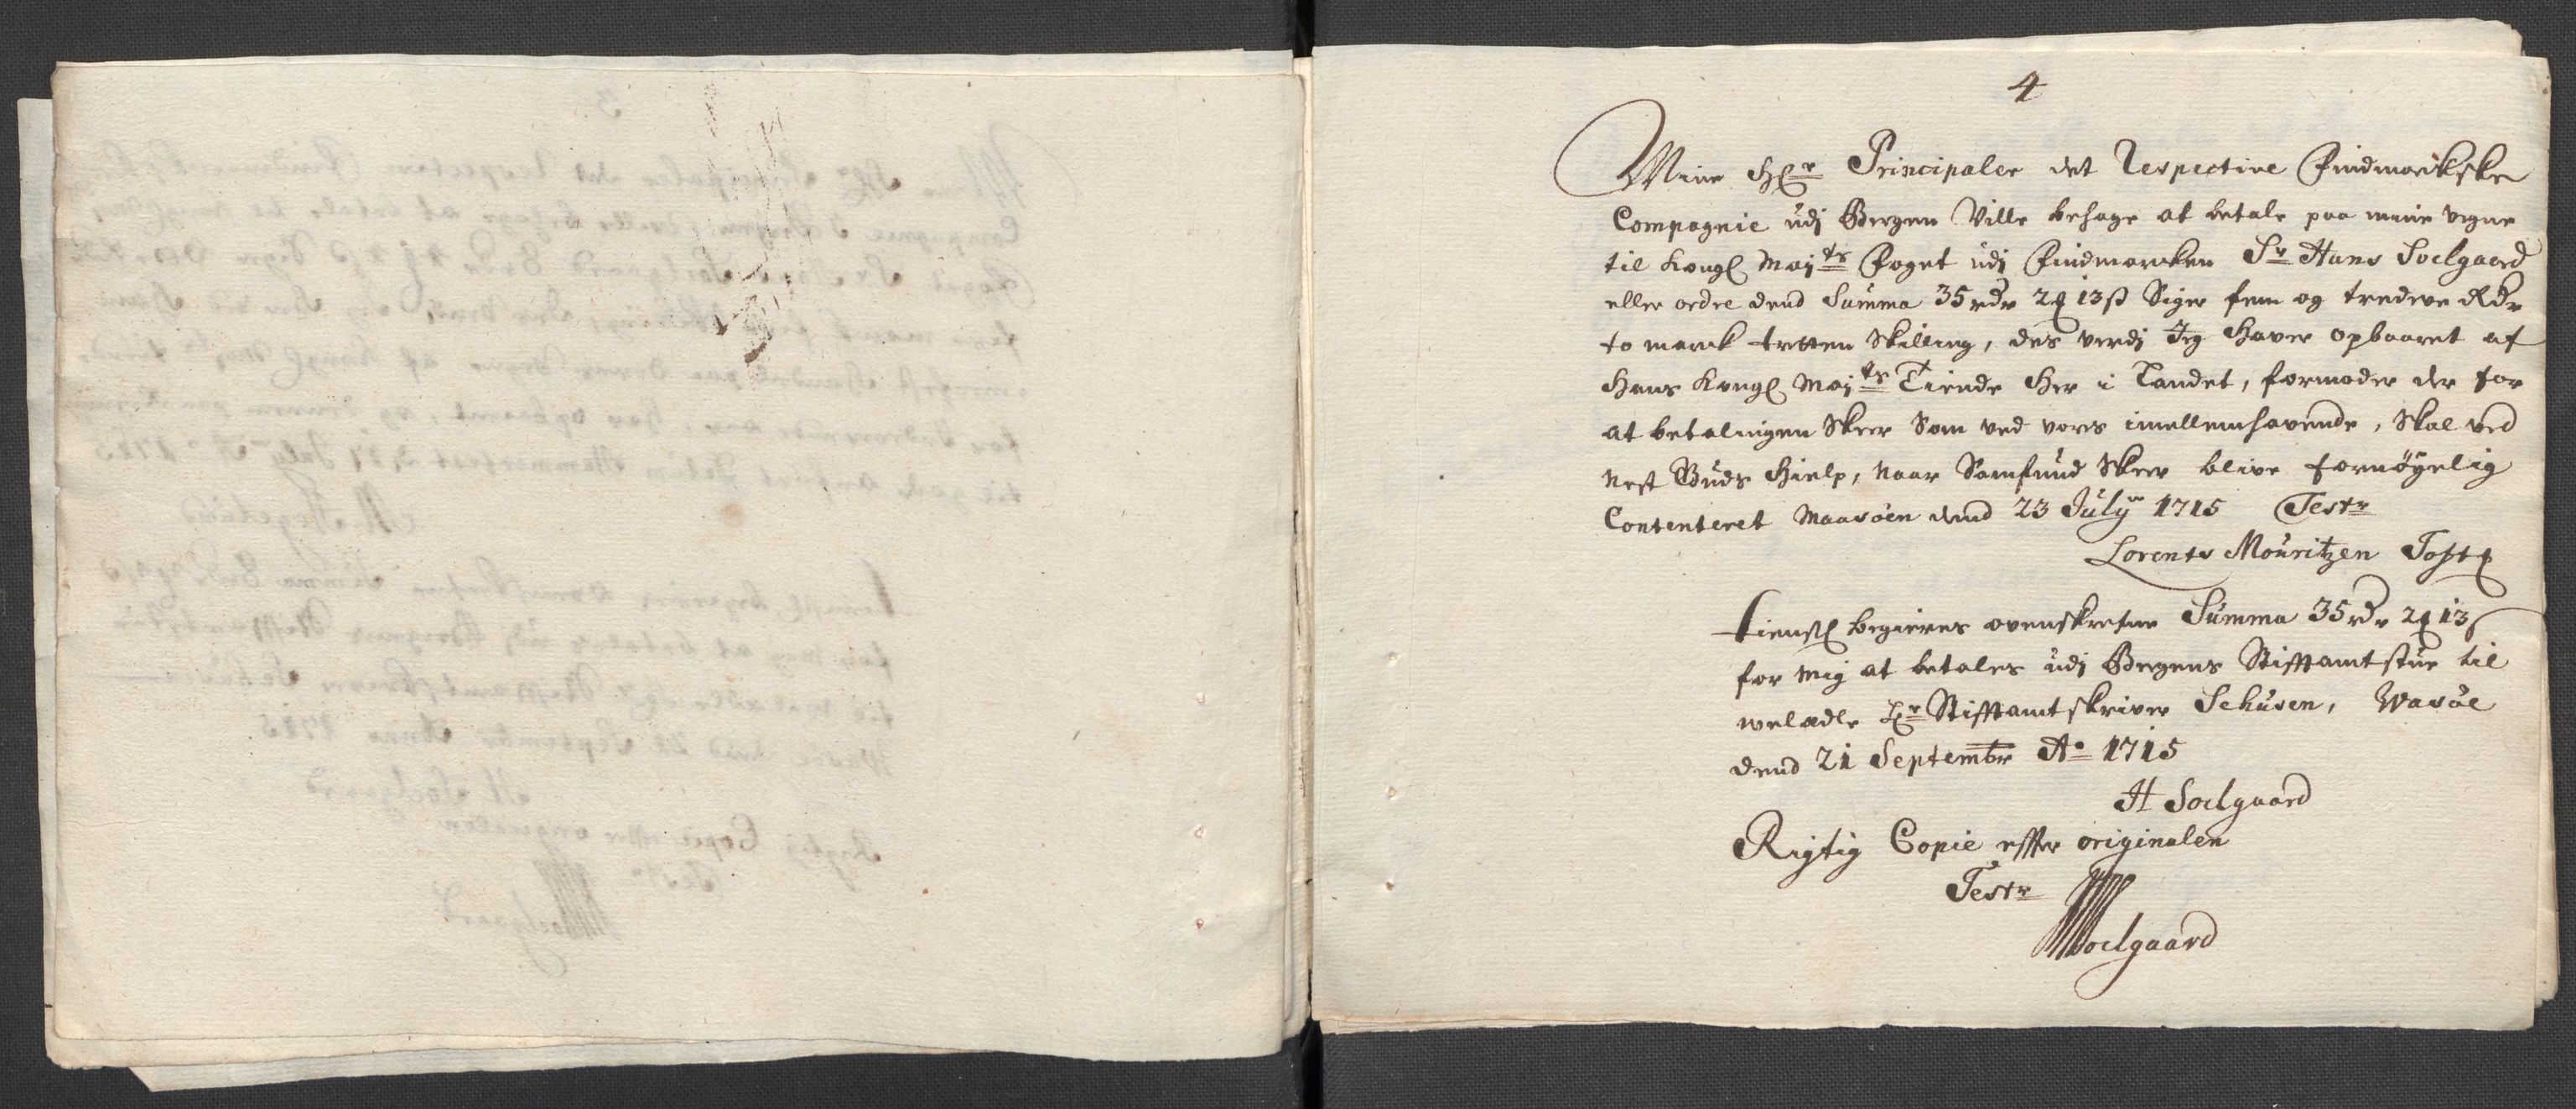 4
Mine Hr Principaler det Respective Findmarkske
Compagnie udj Bergen Ville behage at betale paa mine vegne
til Kongl Mayts Foget udj Findmarcken Sr Hans Soelgaard
eller ordre dend Summa 35 rdr 2 mk 13 ß Siger fem og tredeve Rdr
to marck tretten Skilling, des verdj Jeg Haver opbaaret af
Hans Kongl Mayts Tiende Her i Landet, formoder der for
at betalingen Skeer Som ved vores imellemhavende, Skal ved
nest Guds Hielp, naar Samfund Skeer blive fornøyelig
Contenteret Maasöen dend 23 July 1715 Testr
Lorents Mouritzen Toft
tienstl begieres ovenskrefne Summa 35 rdr 2 mk 13 ß
for mig at betales udj Bergens Stifftamtstue til
weladle Hr Stifftamtskriver Schusen, Wasöe
dend 21 Septembr Ao 1715
H Soelgaard
Rigtig Copie effter originalen
Testr
HSoelgaard